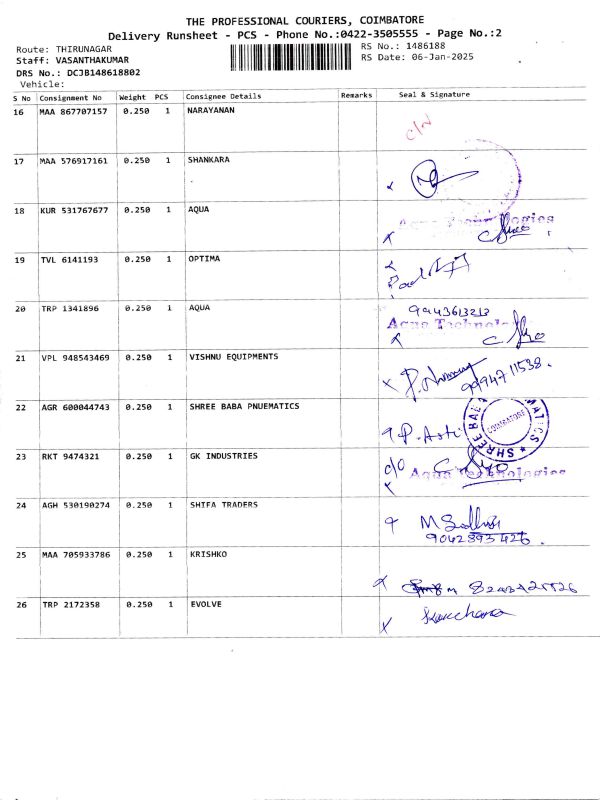 THE PROFESSIONAL COURIERS, COIMBATORE
Delivery Runsheet - PCS - Phone No.:0422-3505555 - Page No.:2
Route: THIRUNAGAR RS No.: 1486188
Staff: VASANTHAKUMAR RS Date: 06-Jan-2025
DRS No.: DCJB148618802
Vehicle:
S No Consignment No Weight PCS Consignee Details Remarks Seal & Signature
16 MAA 867707157 0.250 1 NARAYANAN
17 MAA 576917161 0.250 1 SHANKARA
18 KUR 531767677 0.250 1 AQUA
Aqua Technologies
19 TVL 6141193 0.250 1 OPTIMA
20 TRP 1341896 0.250 1 AQUA 9443613213
Aqua Technol
21 VPL 948543469 0.250 1 VISHNU EQUIPMENTS
9994711538.
22 AGR 600044743 0.250 1 SHREE BABA PNUEMATICS
COIMBATORE
23 RKT 9474321 0.250 1 GK INDUSTRIES
Aqua Technologies
24 AGH 530190274 0.250 1 SHIFA TRADERS
9042893426.
25 MAA 705933786 0.250 1 KRISHKO
26 TRP 2172358 0.250 1 EVOLVE